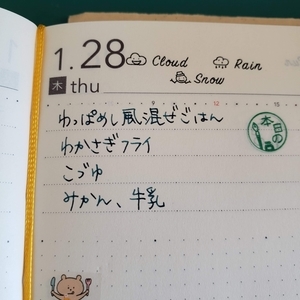 1.28 Cloud Rain
Snow
木 thu
9 12 15
わっぱめし風混ぜごはん
わかさぎフライ
こづゆ
みかん、牛乳
本日の